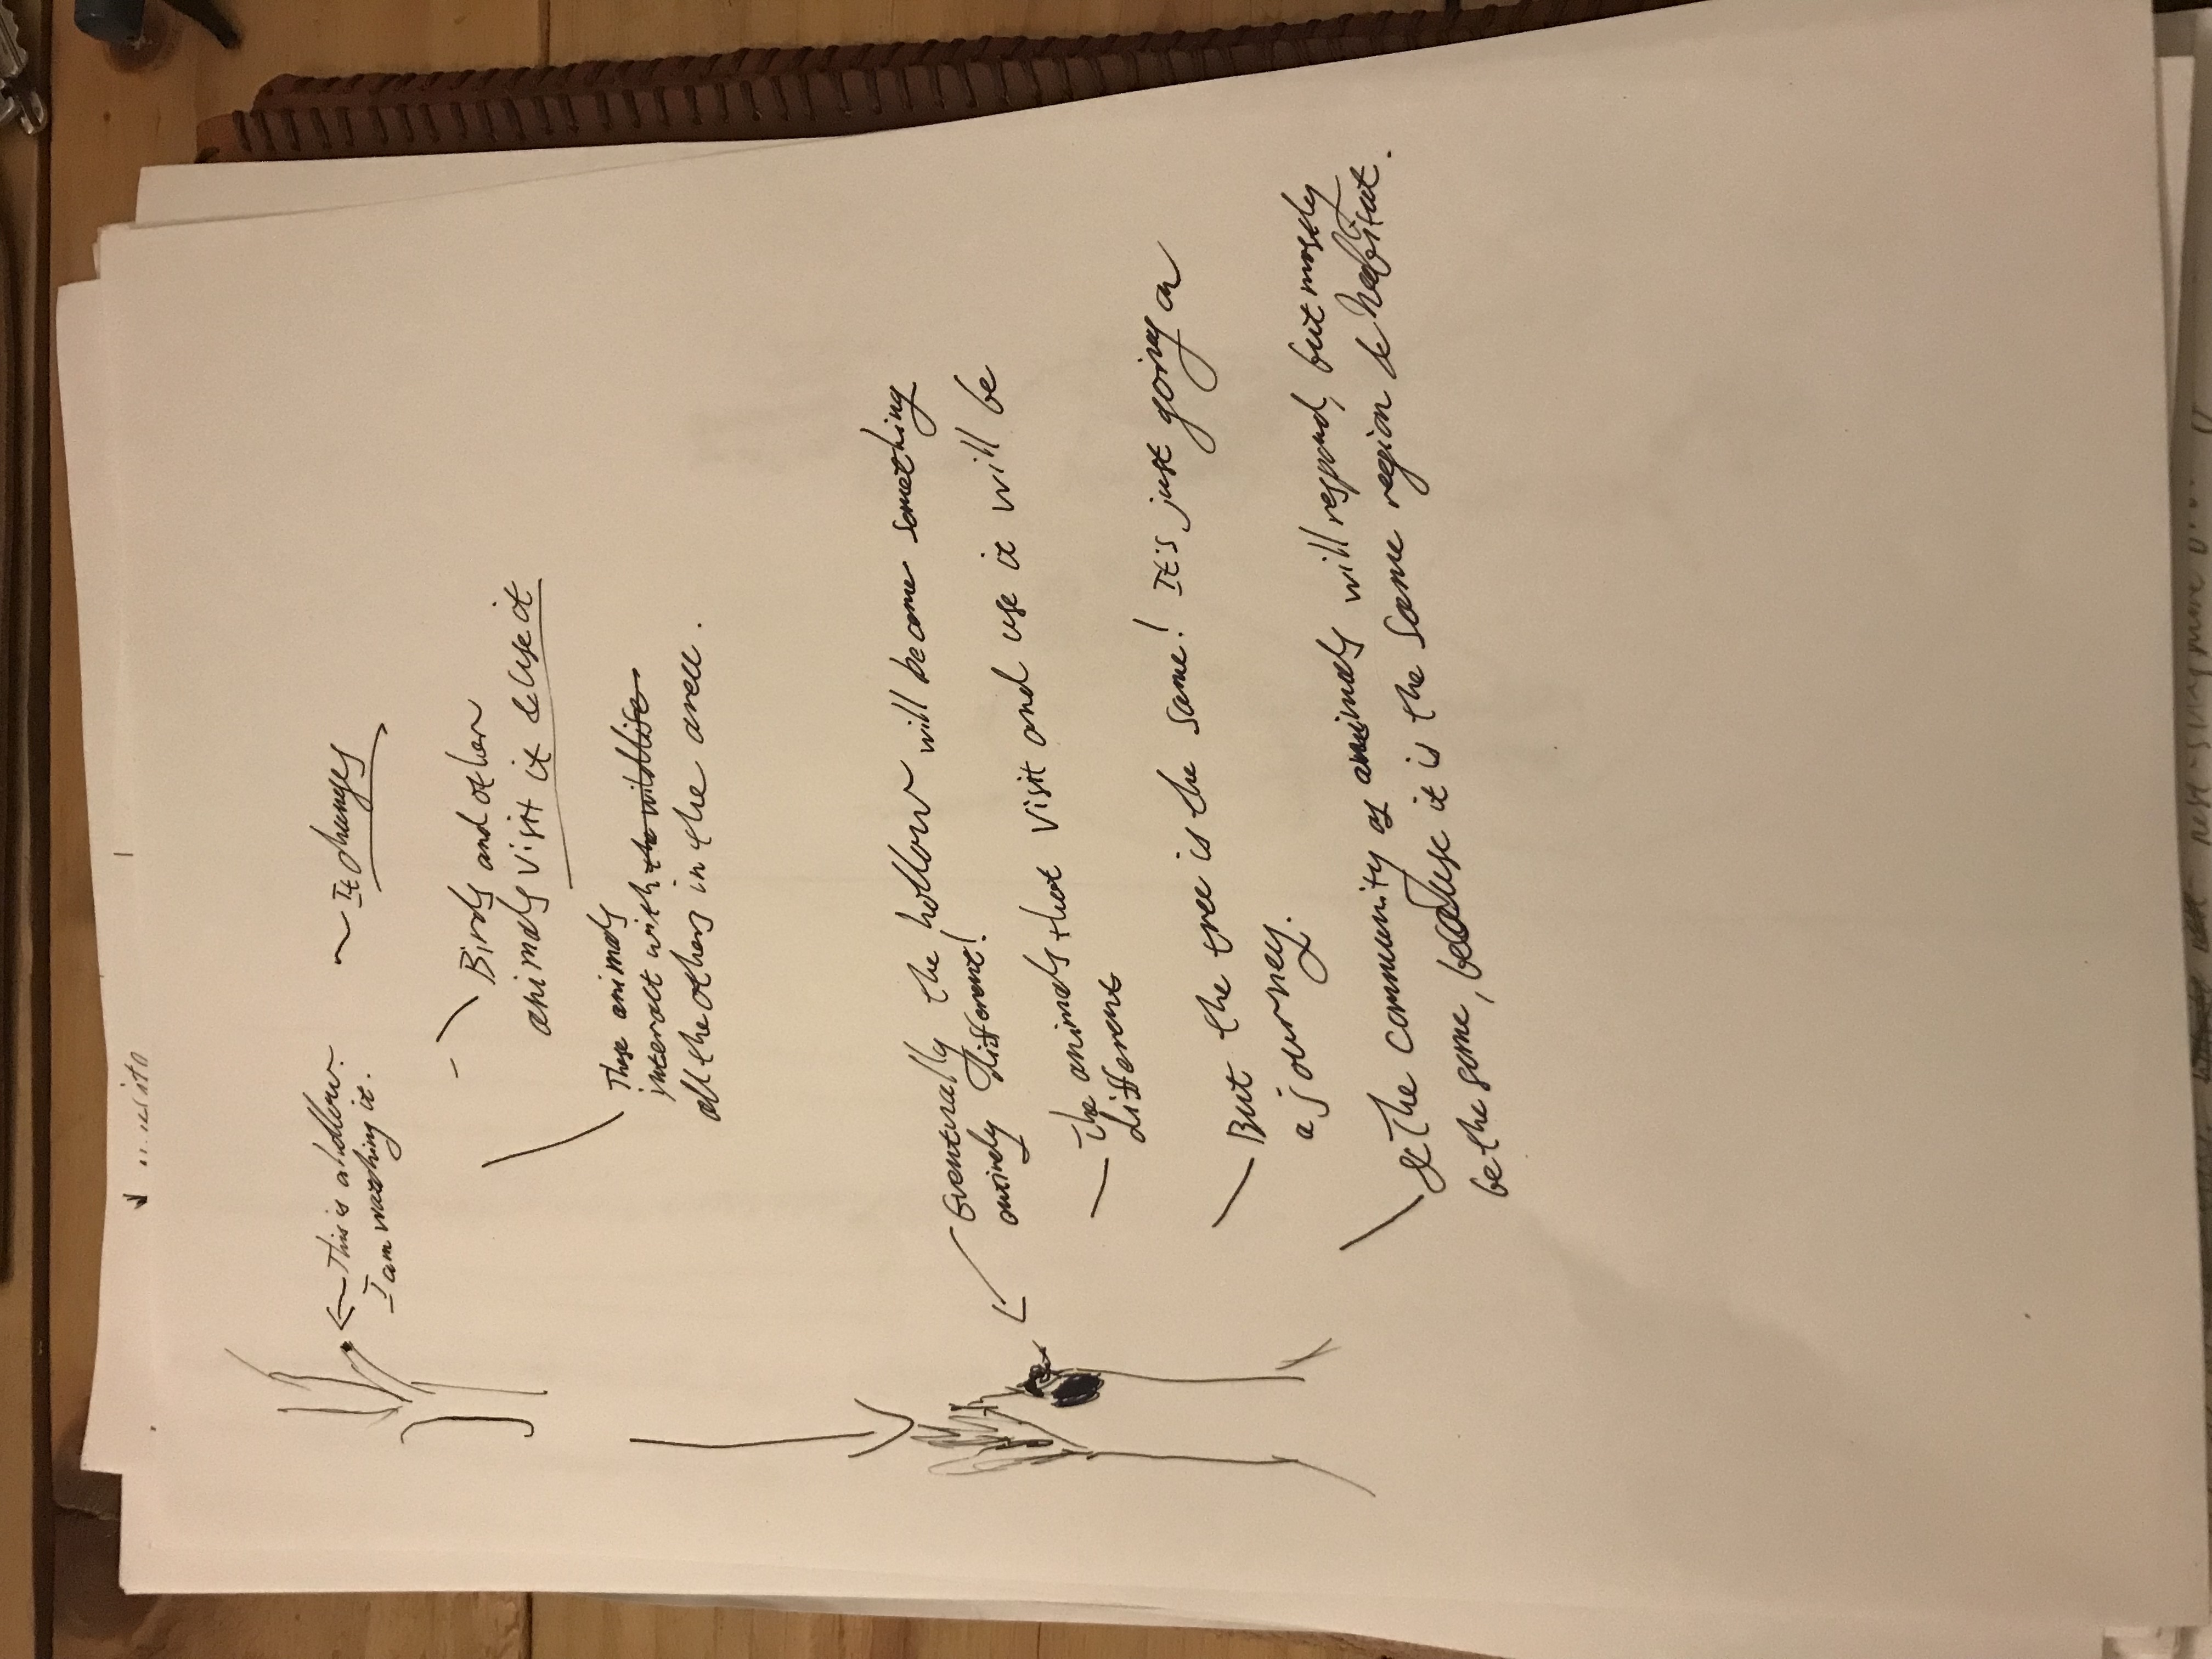 This is a hollow.
I am watching it.
~ It changes
Birds and other
animals visit it & use it
These animals
interact with the wildlife
all the others in the area.
Eventually the hollow will become something
entirely different!
The animals that visit and use it will be
different
But the tree is the same! It's just going on
a journey.
& The community of animals will respond, but mostly
be the same, because it is the same region & habitat.